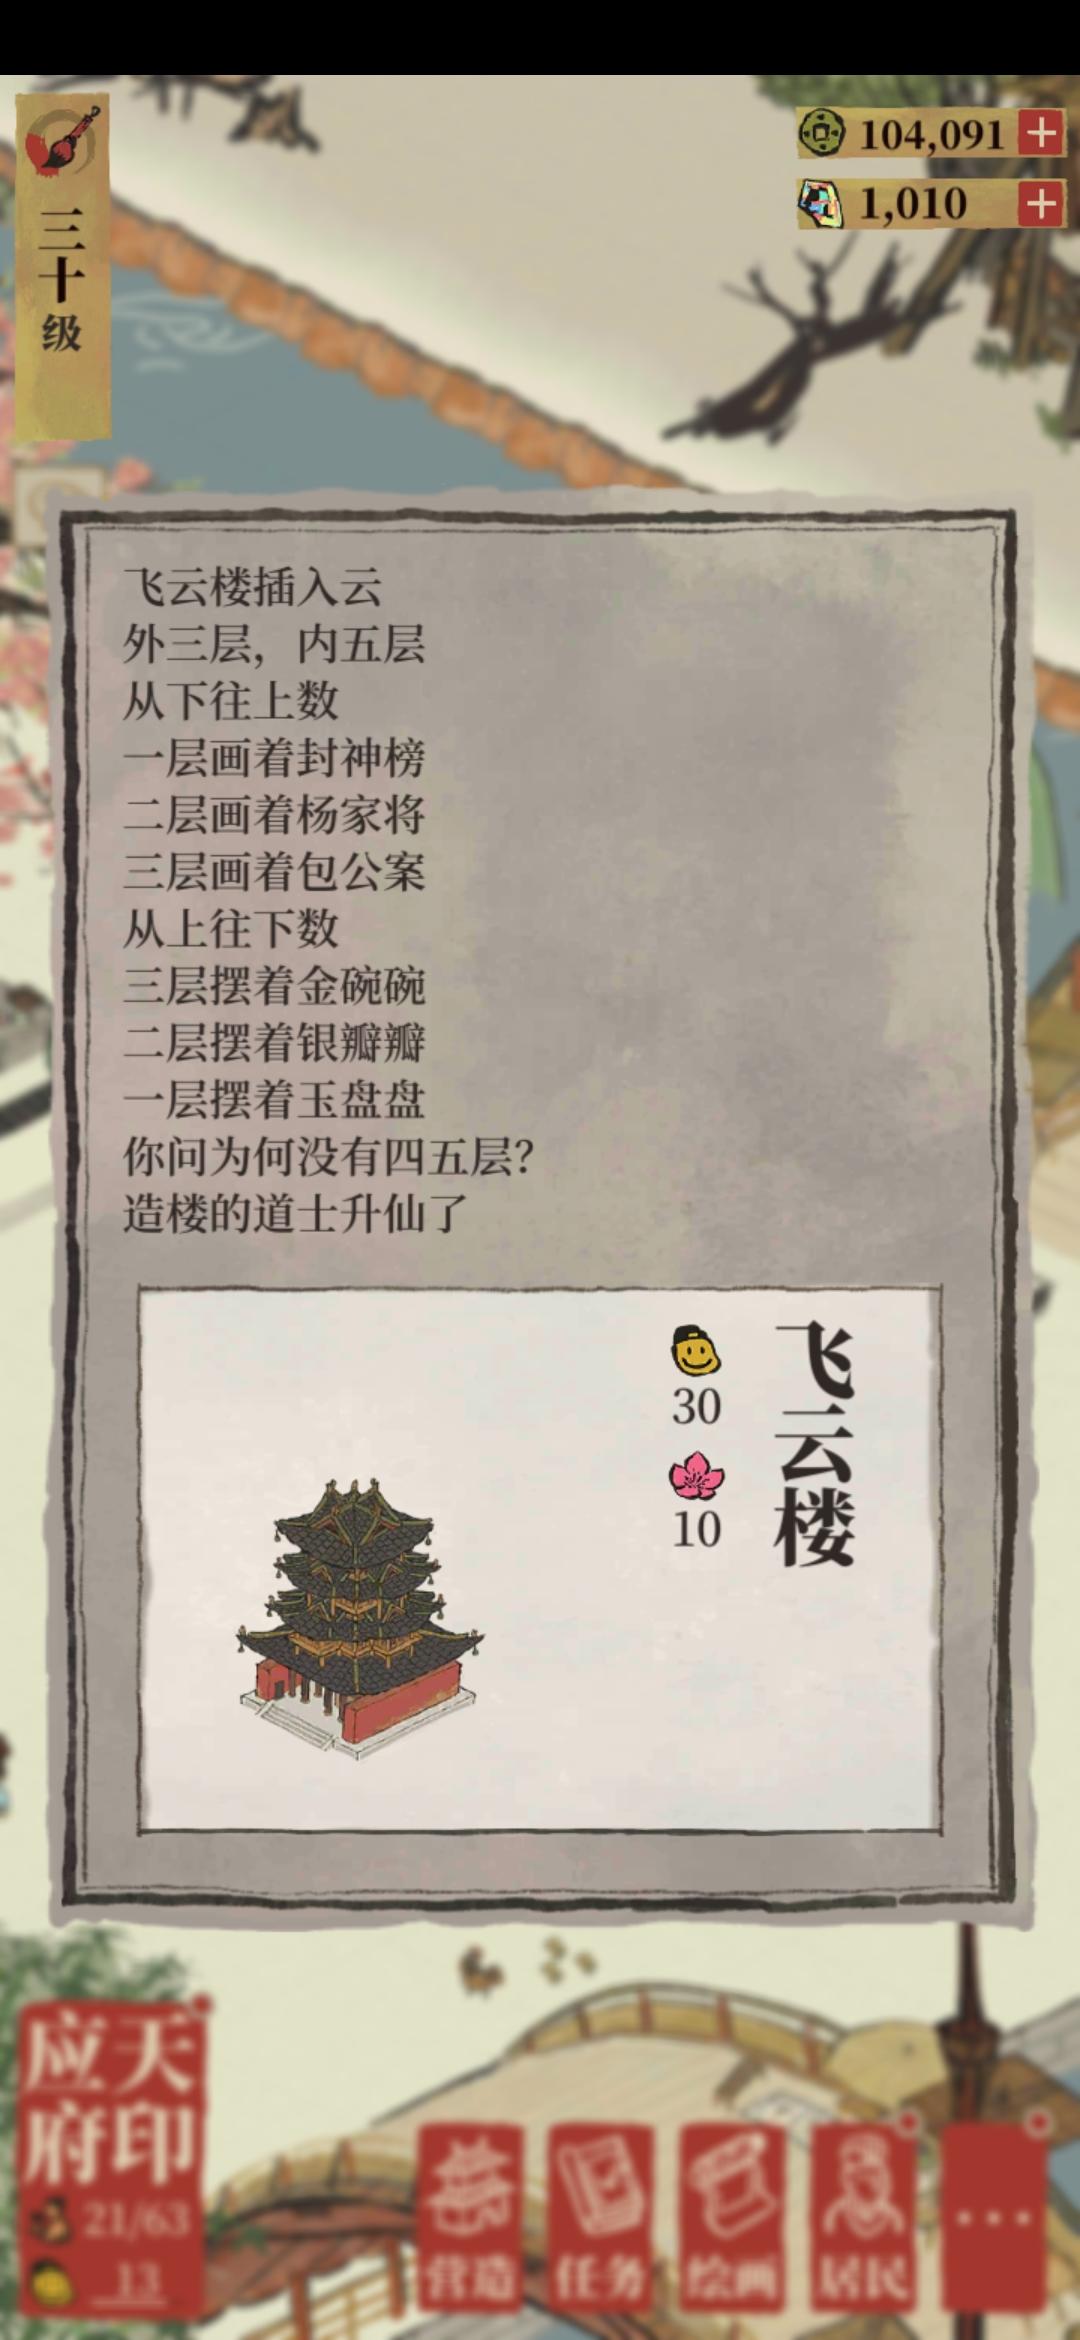 三十级
104,091
1,010
飞云楼插入云
外三层，内五层
从下往上数
一层画着封神榜
二层画着杨家将
三层画着包公案
从上往下数
三层摆着金碗碗
二层摆着银瓣瓣
一层摆着玉盘盘
你问为何没有四五层？
造楼的道士升仙了
飞云楼
30
10
天印
应府
21/63
13
营造
任务
绘画
居民